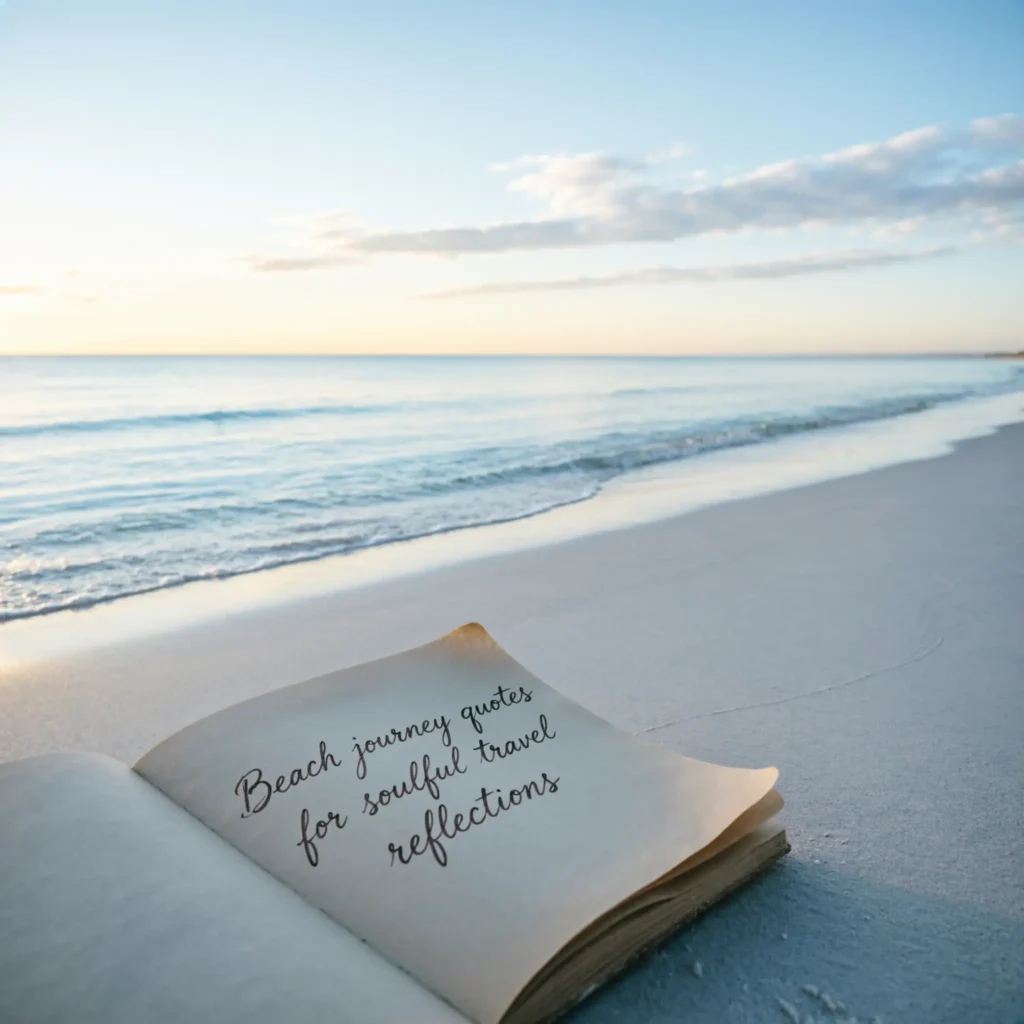 Beach journey quotes
for soulful travel
reflections